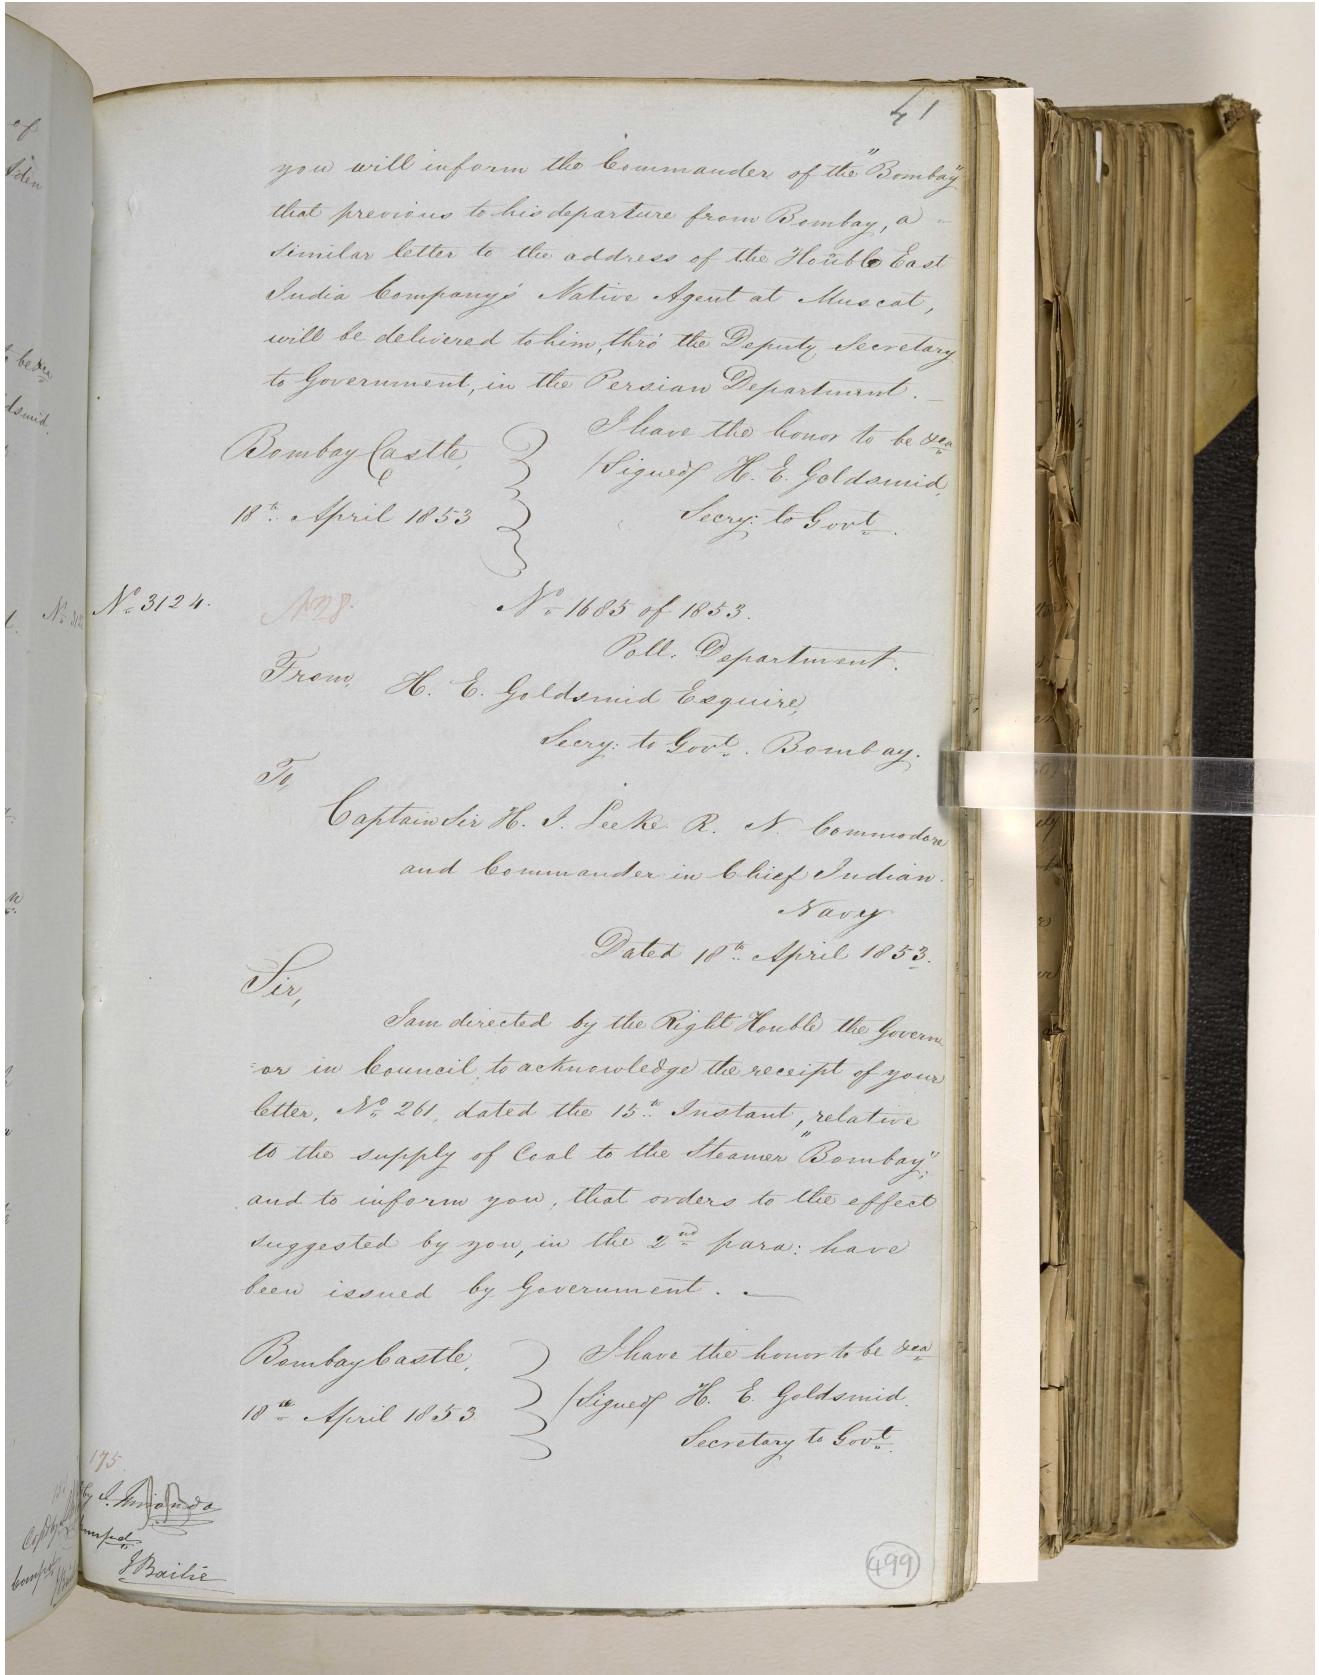 41
you will inform the Commander of the "Bombay"
that previous to his departure from Bombay, a -
similar letter to the address of the Honble East
India Company's Native Agent at Muscat,
will be delivered to him, thro' the Deputy Secretary
to Government, in the Persian Department. _
I have the honor to be &ca
Bombay Castle,
(Signed) H. E. Goldsmid,
18th April 1853
Secry: to Govt.
No 3124.
No 1685 of 1853.
Poll. Department.
From, H. E. Goldsmid Esquire,
Secry: to Govt. Bombay.
To,
Captain Sir H. J. Leeke R. N. Commodore
and Commander in Chief Indian
Navy
Dated 18th April 1853.
Sir,
I am directed by the Right Honble the Govern
=or in Council, to acknowledge the receipt of your
letter, No 261, dated the 15th Instant, relative
to the supply of Coal to the Steamer "Bombay";
and to inform you, that orders to the effect
suggested by you, in the 2nd para: have
been issued by Government. _
Bombay Castle,
I have the honor to be &ca
(Signed) H. E. Goldsmid.
18th April 1853
Secretary to Govt.
175
by J.
J Bailie
499